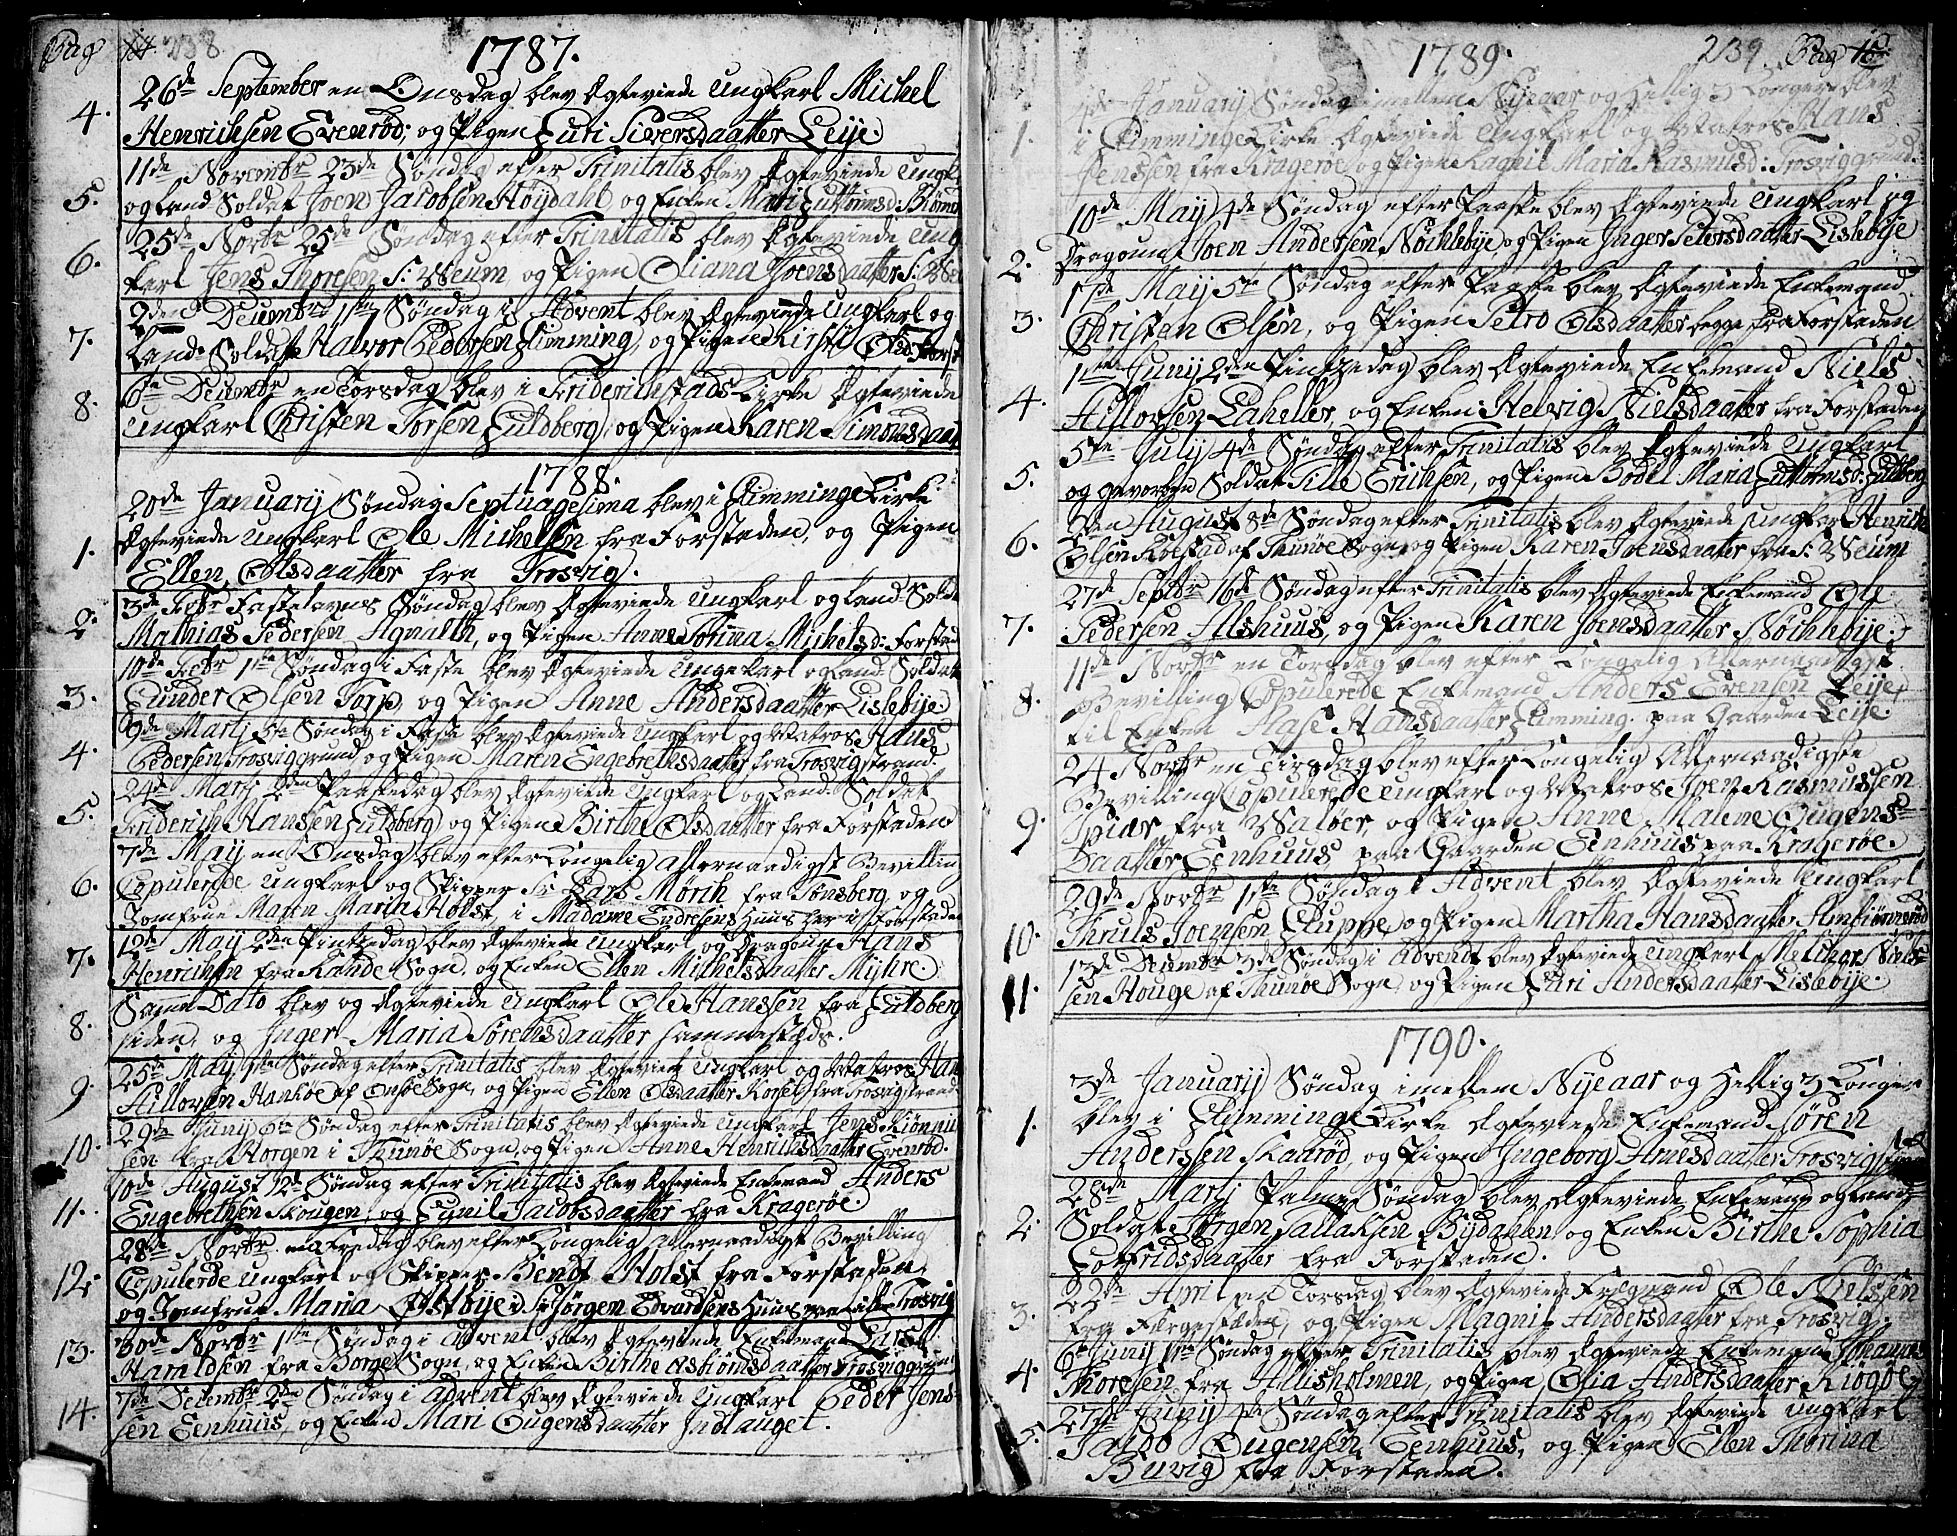 Pag 14 238
1787.
4. 26de September en Onsdag blev Ægteviede Ungkarl Michel
Henrichsen Evenrød, og Pigen Guri Siversdaatter Leije.
5. 11de Novembr 23de Søndag efter Trinitatis blev Ægteviede Ungk
og Land Soldat Joen Jacobsen Høydahl og Enken Mari Guttormsd
6. 25de Novbr 25de Søndag efter Trinitatis blev Ægteviede Ung
karl Jens Thoresen S: Weum, og Pigen Oliana Joensdaatter S: We
7. 2den Decembr 1ste Søndag i Advent blev Ægteviede Ungkarl og
Land Soldat Halvor Pedersen Glemming, og Pigen Kirsti
8. 6te Decembr en Torsdag blev i Friderichstads Kirke Ægteviede
Ungkarl Christen Torsen Guldberg, og Pigen Karen Simonsdaat
1788.
20de Januarij Søndag Septuagesima blev i Glemminge Kirke
1. Ægteviede Ungkarl Ole Michelsen fra Forstaden, og Pigen
Ellen Olsdaatter fra Trosvig.
2. 3de Febr Fastelavns Søndag blev Ægteviede Ungkarl og Land Sold
Mathias Pedersen Agnalth, og Pigen Anne Michelsd: Forstad
3. 10de Febr 1ste Søndag i Faste blev Ægteviede Ungkarl og Land Soldat
Gunder Olsen Torp, og Pigen Anne Andersdaatter Lislebije.
4. 9de Martj 5te Søndag i Faste blev Ægteviede Ungkarl og Matros Hans
Pedersen Trosviggrund og Pigen Maren Engebrethsdaatter fra Trosvigstrand.
5. 24de Martj 2den Paaskedag blev Ægteviede Ungkarl og Land Soldat
Friderich Hansen Guldberg, og Pigen Birthe Olsdaatter fra Forstaden
6. 7de May en Onsdag blev efter Kongelig Allernaadigst Bevilling
Copulerede Ungkarl og Skipper Sr Lars Mørch fra Tønsberg og
Jomfrue Maren Maria Holst, i Madame Endresens Huus her i Forstaden
7. 12de May 2den Pintzedag blev Ægteviede Ungkarl og Dragoun Hans
Henrichsen fra Raade Sogn, og Enken Ellen Michelsdaatter Myhre.
8. Samme Dato blev og Ægteviede Ungkarl Ole Hanssen fra Guldberg
siden, og Inger Maria Sørensdaatter sammestæds.
9. 25de May 1ste Søndag efter Trinitatis blev Ægteviede Ungkarl og Matros Han
Hillovsen Hankøe af Onsøe Sogn, og Pigen Ellen Olsdaatter fra Trosvigstrand.
10. 29de Junij 6te Søndag efter Trinitatis blev Ægteviede Ungkarl Jens
sen fra Horgen i Thunøe Sogn, og Pigen Anne Henrichsdaatter Evenrød.
11. 10de August 12de Søndag efter Trinitatis blev Ægteviede Enkemand Anders
Engebrethsen Skougen, og Gunil Jacobsdaatter fra Kragerøe.
12. 28de Novbr en Fredag blev efter Kongelig Allernaadigst Bevilling
Copulerede Ungkarl og Skipper Bendt Holst fra Forstaden,
og Jomfrue Maria Østbije i Sr Jørgen Edvardsens Huus Trosvig
13. 30de Novbr 1ste Søndag i Advent blev Ægteviede Enkemand Lars
Haraldsen fra Borge Sogn, og Enken Birthe daatter Trosviggrund
14. 7de Decembr 2de Søndag i Advent blev Ægteviede Ungkarl Peder Jens
sen Eenhuus, og Enken Mari Eugensdaatter Indlauget.
1789. 239. Pag 15
1. 4de Januarij Søndag imellem Nijeaar og Hellig 3 Konger blev
i Glemminge Kirke Ægteviede Ungkarl og Matros Hans
Jenssen fra Kragerøe, og Pigen Ragnil Maria Rasmusd: Trosviggrund.
2. 10de May 4de Søndag efter Paaske blev Ægteviede Ungkarl og
Dragoun Joen Andersen Nøchlebije, og Pigen Inger Petersdaatter Lislebije
3. 17de May 5te Søndag efter Paaske blev Ægteviede Enkemand
Christen Olsen, og Pigen Petro Olsdaatter begge fra Forstaden
4. 1ste Junij 2den Pintzedag blev Ægteviede Enkemand Niels
Hillovsen Laheller, og Enken Helvig Nielsdaatter fra Forstaden
5. 5te Julij 4de Søndag efter Trinitatis blev Ægteviede Ungkarl
og gevorben Soldat Tille Erichsen, og Pigen Bodel Maria Guttormsd: Guldberg
6. 2den August 8de Søndag efter Trinitatis blev Ægteviede Ungkarl Henrich
Olsen Rolstad af Thunøe Sogn, og Pigen Karen Joensdaatter fra S: Weum
7. 27de Septbr 16de Søndag efter Trinitatis blev Ægteviede Enkemand Ole
Pedersen Alshuus, og Pigen Karen Joensdaatter Nøchlebije.
8. 11de Novbr en Torsdag blev efter Kongelig Allernaadigst
Bevilling Copulerede Enkemand Anders Evensen Leije,
til Enken Aase Hansdaatter Glemming paa Gaarden Leije.
9. 24 Novbr en Tirsdag blev efter Kongelig Allernaadigste
Bevilling Copulerede Ungkarl og Matros Joen Rasmussen
Spiar fra Waløer, og Pigen Anne Malene Eugens
Daatter Eenhuus paa Gaarden Eenhuus paa Kragerøe.
10. 29de Novbr 1ste Søndag i Advent blev Ægteviede Ungkarl
Thruls Joensen Kluppe, og Pigen Martha Hansdaatter
11. 13de Decembr 3de Søndag i Advent blev Ægteviede Ungkarl Melchor Niels
sen Houge af Thunøe Sogn, og Pigen Guri Andersdaatter Lislebije.
1790.
1. 3de Januarij Søndag imellem Nijeaar og Hellig 3 Konger
blev i Glemminge Kirke Ægteviede Enkemand Søren
Anderssen Skaarød, og Pigen Ingeborg Arnesdaatter Trosvig
2. 28de Martj Palme Søndag blev Ægteviede Enkemand og Land
Soldat Jørgen Tallaksen Bijdahlen og Enken Birthe Sophia
Gotfridsdaatter fra Forstaden.
3. 22de April en Torsdag blev Ægteviede Færgemand Ole Nielsen
fra Færgestæden, og Pigen Magnil Andersdaatter fra Trosvig.
4. 6te Junij 1ste Søndag efter Trinitatis blev Ægteviede Enkemand Johannes
Thoresen fra Allisholmen, og Pigen Olia Andersdaatter Kiøgøe
5. 27de Junij 4de Søndag efter Trinitatis blev Ægteviede Ungkarl
Jacob Eugensen Eenhuus, og Pigen Ellen Thorina
Buvig fra Forstaden.